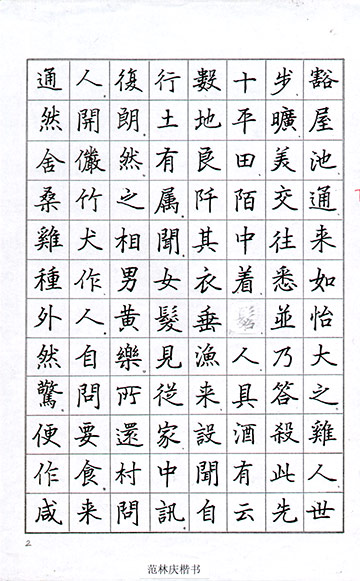 通人復行數十步豁
然開朗土地平曠屋
舍儼然有良田美池
桑竹之属阡陌交通
雞犬相聞其中往来
種作男女衣着悉如
外人黄髮垂並怡
然自樂見漁人乃大
驚問所從来具答之
便要還家設酒殺雞
作食村中聞有此人
咸来問訊自云先世
2
范林庆楷书